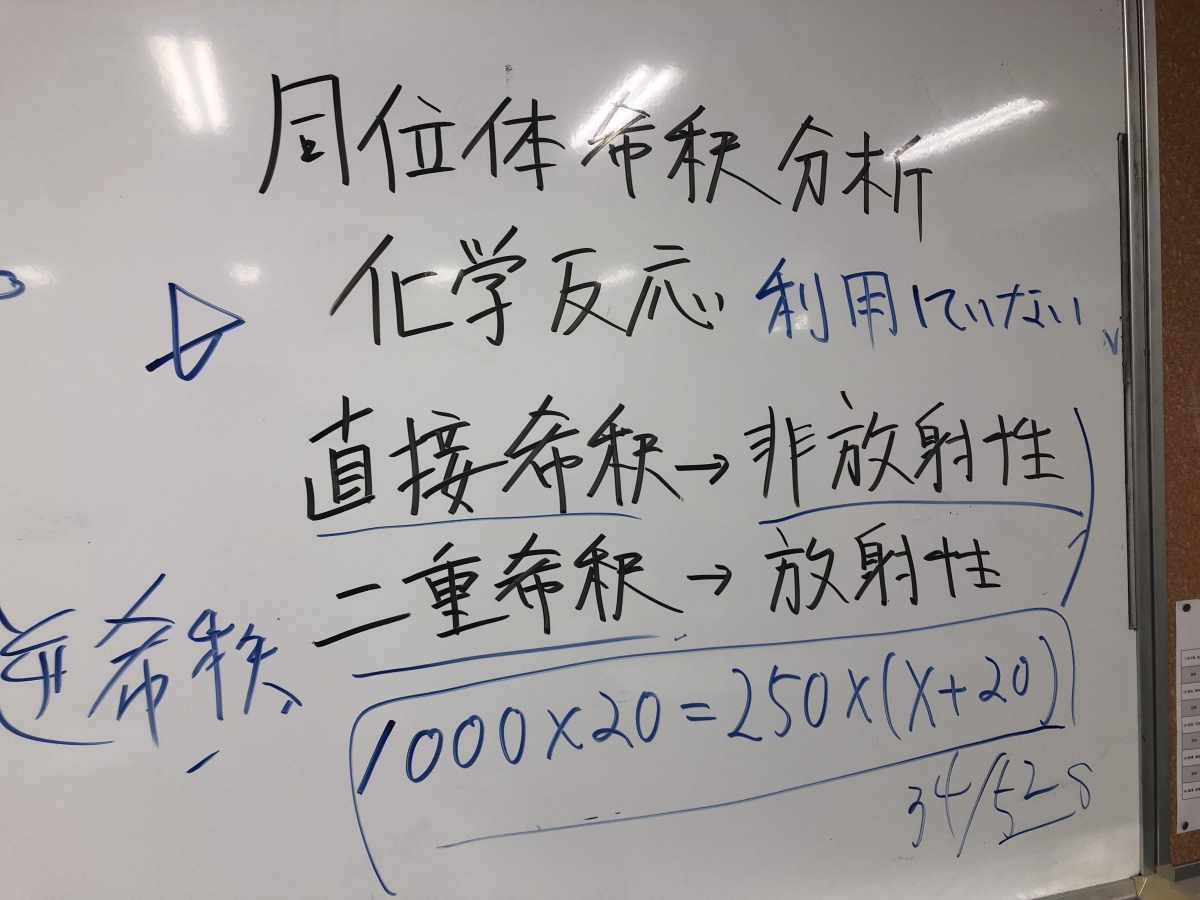 同位体希釈分析
化学反応 利用していない
直接希釈→非放射性
二重希釈→放射性
逆希釈
1000×20=250×(X+20)
34/528